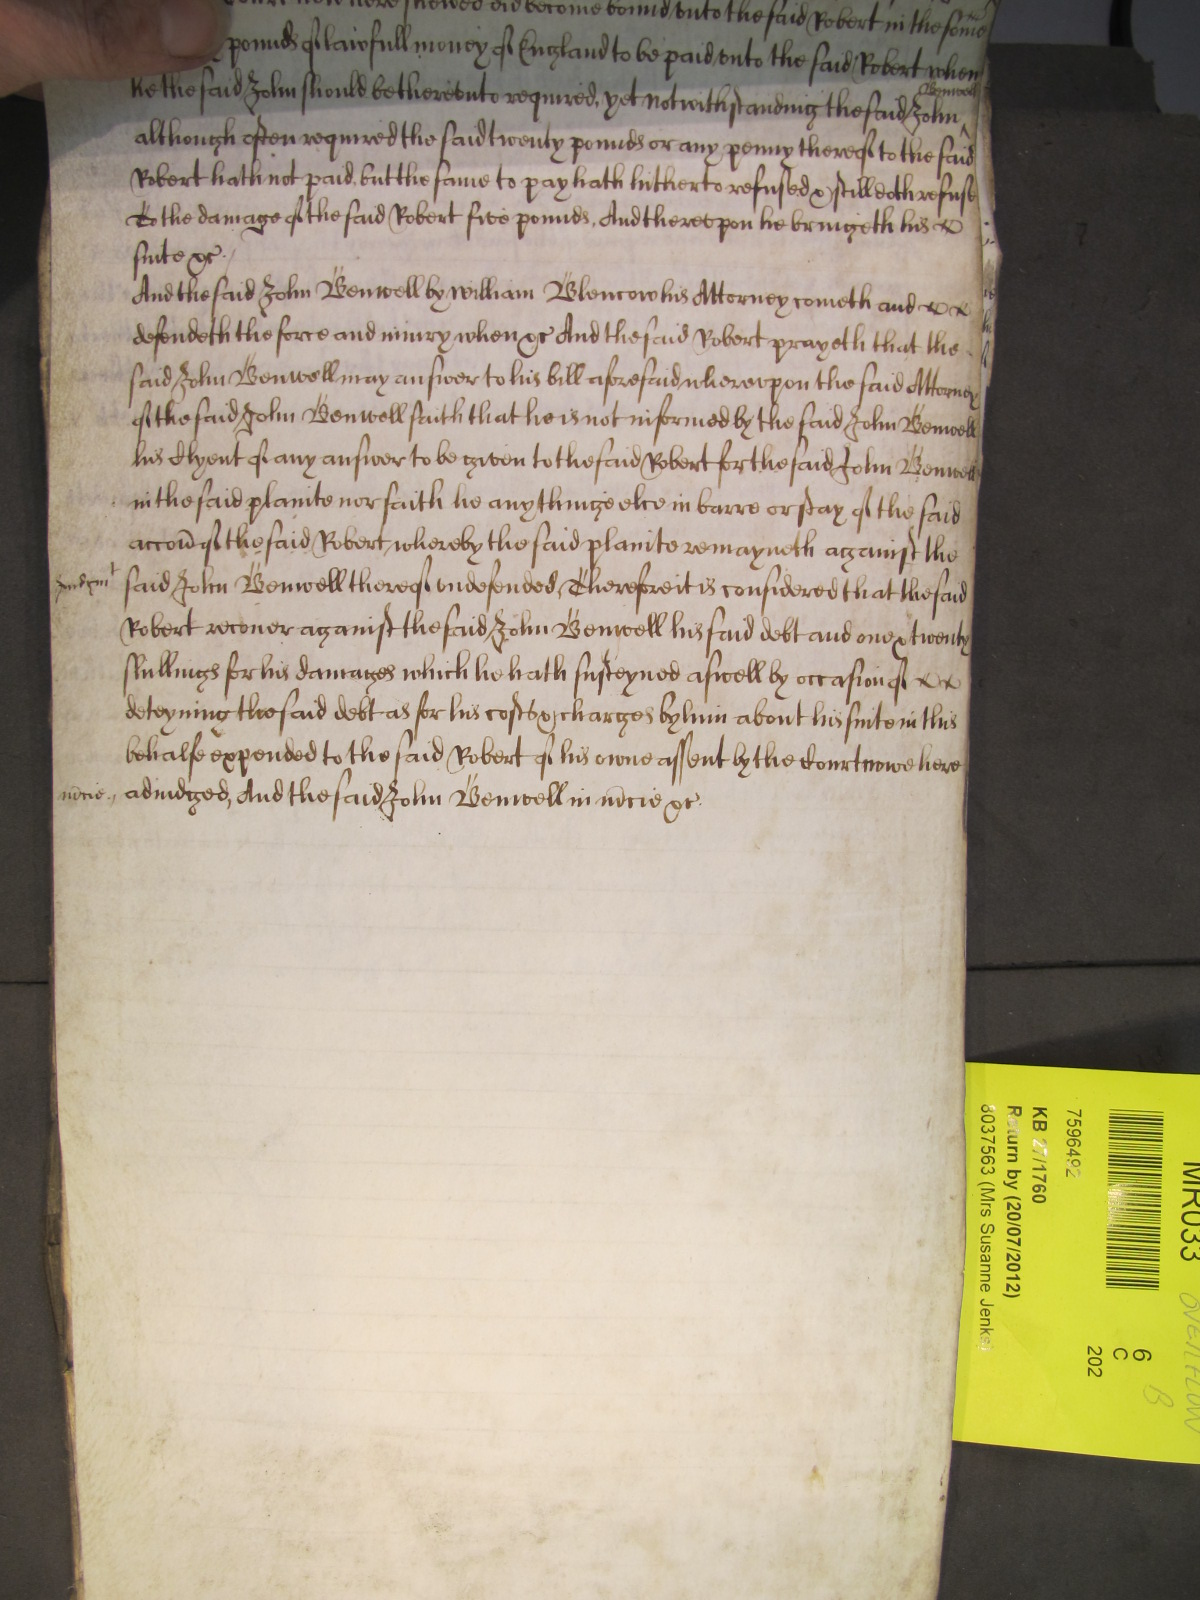 Court now here shewed did become bound unto the said Robert in the some
pounds of lawfull money of England to be paid unto the said Robert when
he the said John should be thereunto required, yet notwithstanding the said John Benwell
although often required the said twenty pounds or any penny thereof to the said
Robert hath not paid, but the same to pay hath hitherto refused & still doth refuse
To the damage of the said Robert five pounds. And thereupon he bringeth his
suite &c.
And the said John Benwell by William Blencow his Attorney cometh and
defendeth the force and iniury when &c And the said Robert prayeth that the
said John Benwell may answer to his bill aforesaid whereupon the said Attorney
of the said John Benwell saith that he is not informed by the said John Benwell
his Clyent of any answer to be given to the said Robert for the said John Benwell
in the said plainte nor saith he any thinge else in barre or stay of the said
accon of the said Robert, whereby the said plainte remayneth against the
Judgmt said John Benwell thereof undefended, Therefore it is considered that the said
Robert recover against the said John Benwell his said debt and one & twenty
shillings for his damages which he hath susteyned aswell by occasion of
deteyning the said debt as for his costs & charges by him about his suite in this
behalfe expended to the said Robert of his owne assent by the Court nowe here
mcie. adiudged, And the said John Benwell in mcie &c.
MR033
OVERFLOW
B
6
C
202
7596492
KB 27/1760
Return by (20/07/2012)
8037563 (Mrs Susanne Jenks)